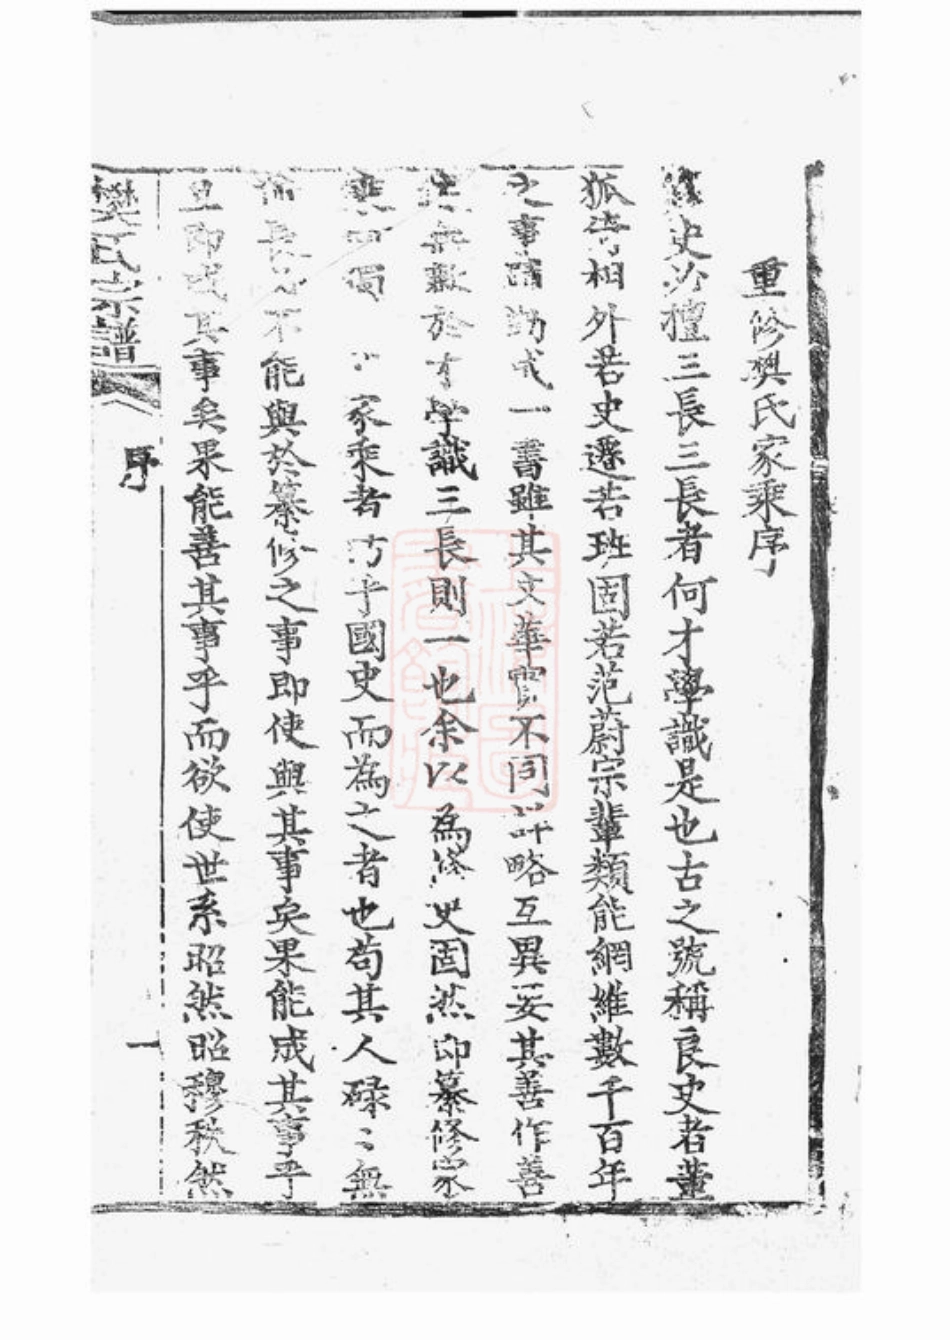 重修樊氏家乘序
史必擅三長三長者何才學識是也古之號稱良史者董
狐倚相外若史遷若班固若范蔚宗輩類能網維數千百年
之事蹟勒成一書雖其文華實不同詳略互異要其善作善
述無歉於才學識三長則一也余以為修史固然即纂修家
乘何獨家乘者乎國史而為之者也苟其人碌〻無
長必不能與於纂修之事即使與其事矣果能成其事乎
且即成其事矣果能善其事乎而欲使世系昭然昭穆秩然
樊氏宗譜
序
一